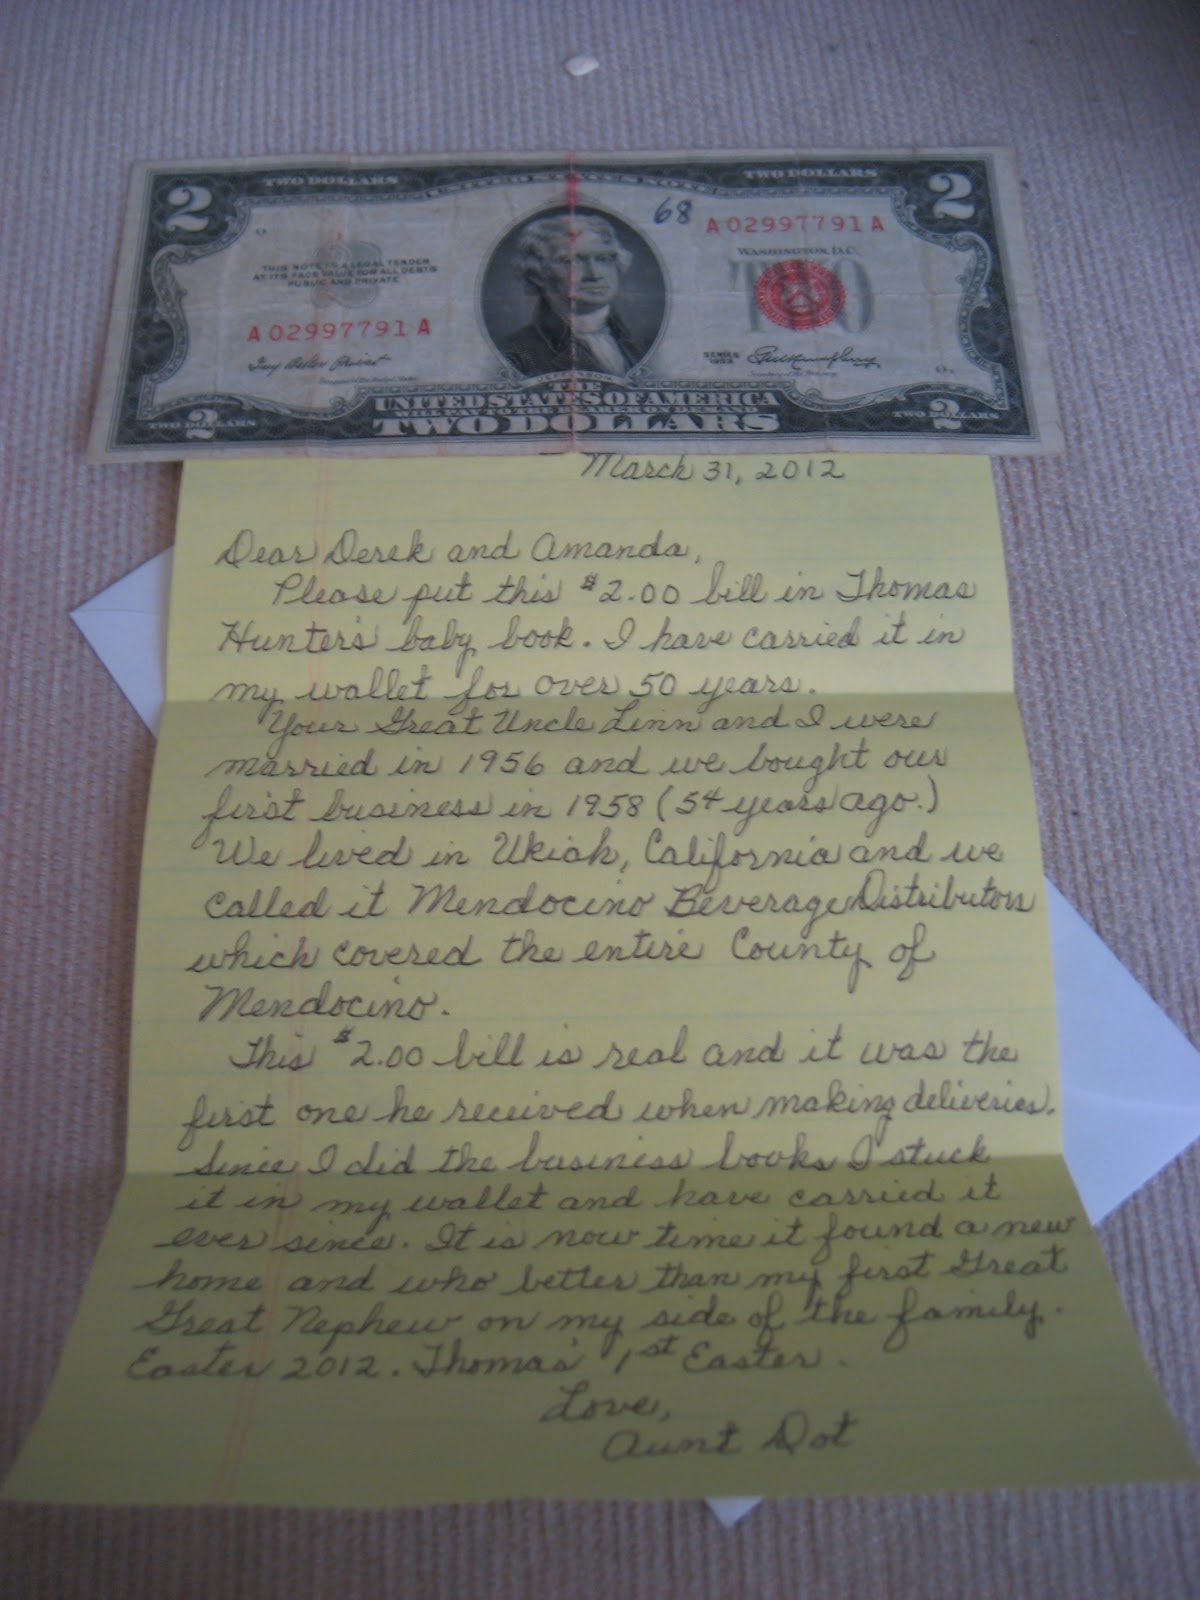 2 TWO DOLLARS UNITED STATES NOTE TWO DOLLARS 2
68 A 02997791 A
WASHINGTON, D.C.
THIS NOTE IS A LEGAL TENDER
AT ITS FACE VALUE FOR ALL DEBTS
PUBLIC AND PRIVATE
TWO
A 02997791 A
SERIES
1953
THE
UNITED STATES OF AMERICA
WILL PAY TO THE BEARER ON DEMAND
TWO DOLLARS
TWO DOLLARS 2
TWO DOLLARS 2
March 31, 2012
Dear Derek and Amanda,
Please put this $2.00 bill in Thomas
Hunter's baby book. I have carried it in
my wallet for over 50 years.
Your Great Uncle Linn and I were
married in 1956 and we bought our
first business in 1958 (54 years ago.)
We lived in Ukiah, California and we
called it Mendocino Beverage Distributors
which covered the entire County of
Mendocino.
This $2.00 bill is real and it was the
first one he received when making deliveries.
Since I did the business books I stuck
it in my wallet and have carried it
ever since. It is now time it found a new
home and who better than my first Great
Great Nephew on my side of the family.
Easter 2012. Thomas' 1st Easter.
Love,
Aunt Dot